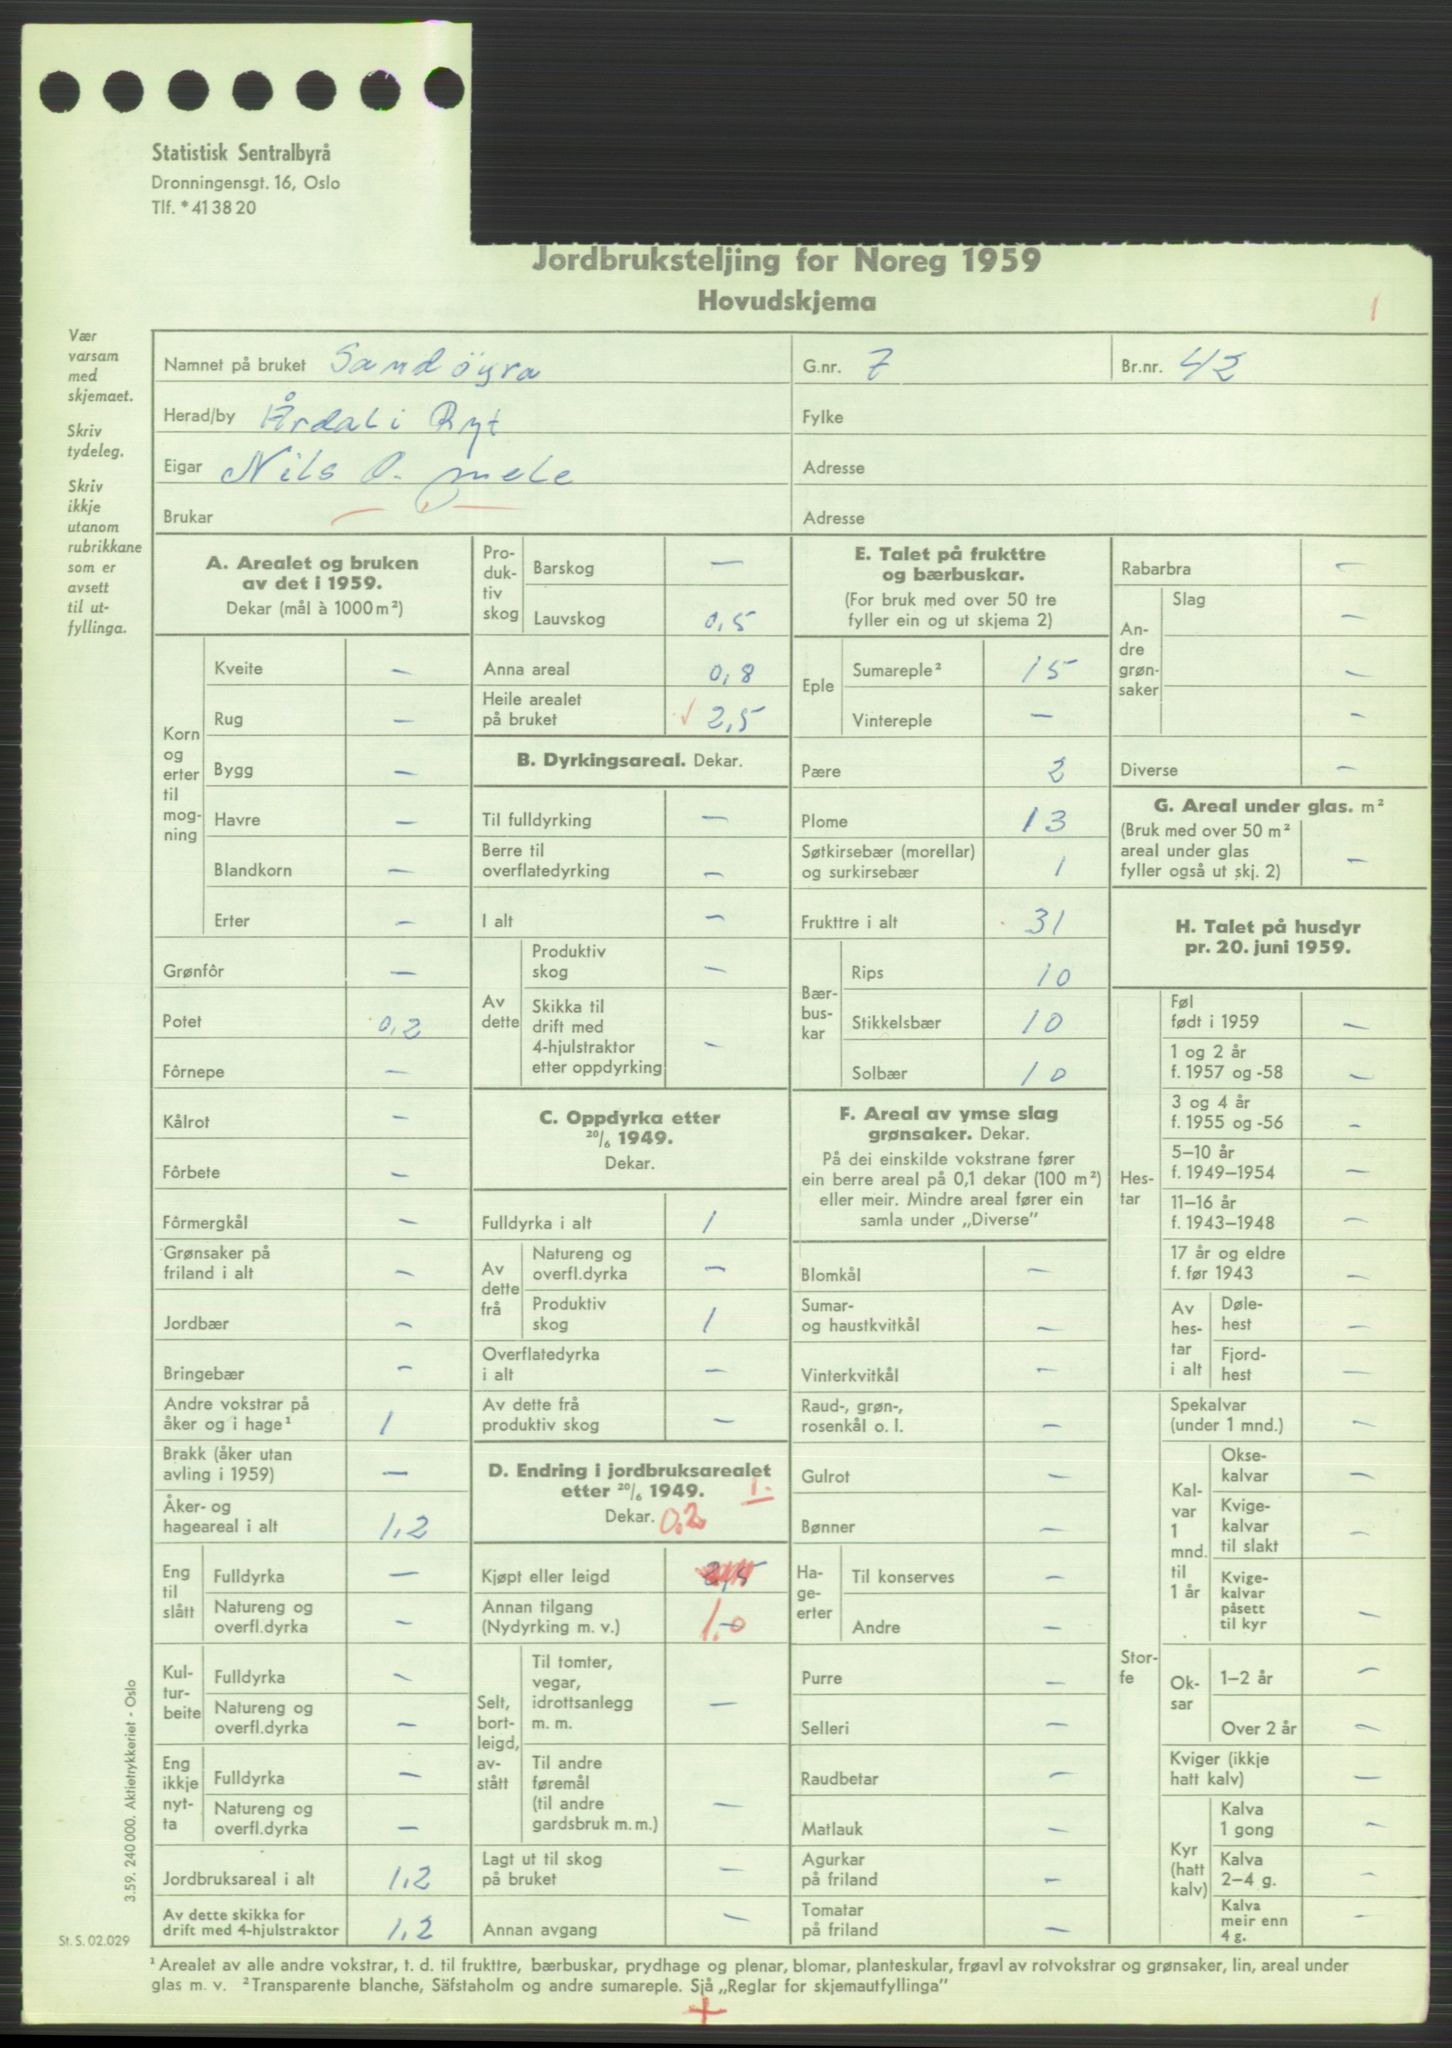 Statistisk Sentralbyrå
Dronningensgt. 16, Oslo
Tlf. *41 38 20
Jordbruksteljing for Noreg 1959
Hovudskjema
1
Vær
varsam
med
skjemaet.
Skriv
tydeleg.
Skriv
ikkje
utanom
rubrikkane
som er
avsett
til ut-
fyllinga.
Namnet på bruket Sandöyra G.nr. 7 Br.nr. 42
Herad/by Årdal i Ryf Fylke
Eigar Nils O. Mele Adresse
Brukar — Adresse
A. Arealet og bruken
av det i 1959.
Dekar (mål à 1000 m²)
Korn
og
erter
til
mog-
ning
Kveite —
Rug —
Bygg —
Havre —
Blandkorn —
Erter —
Grønfôr —
Potet 0,2
Fôrnepe —
Kålrot —
Fôrbete —
Fôrmergkål —
Grønsaker på
friland i alt —
Jordbær —
Bringebær —
Andre vokstrar på
åker og i hage¹ 1
Brakk (åker utan
avling i 1959) —
Åker- og
hageareal i alt 1,2
Eng
til
slått
Fulldyrka —
Natureng og
overfl.dyrka —
Kul-
tur-
beite
Fulldyrka —
Natureng og
overfl.dyrka —
Eng
ikkje
nyt-
ta
Fulldyrka —
Natureng og
overfl.dyrka —
Jordbruksareal i alt 1,2
Av dette skikka for
drift med 4-hjulstraktor 1,2
Pro-
duk-
tiv
skog
Barskog —
Lauvskog 0,5
Anna areal 0,8
Heile arealet
på bruket ✓ 2,5
B. Dyrkingsareal. Dekar.
Til fulldyrking —
Berre til
overflatedyrking —
I alt —
Av
dette
Produktiv
skog —
Skikka til
drift med
4-hjulstraktor
etter oppdyrking —
C. Oppdyrka etter
20/6 1949.
Dekar.
Fulldyrka i alt 1
Av
dette
frå
Natureng og
overfl.dyrka —
Produktiv
skog 1
Overflatedyrka
i alt —
Av dette frå
produktiv skog —
D. Endring i jordbruksarealet
etter 20/6 1949. 1.
Dekar. 0,2
Kjøpt eller leigd 2,5
Annan tilgang
(Nydyrking m. v.) 1,0
Selt,
bort-
leigd,
av-
stått
Til tomter,
vegar,
idrottsanlegg
m. m. —
Til andre
føremål
(til andre
gardsbruk m. m.) —
Lagt ut til skog
på bruket —
Annan avgang —
E. Talet på frukttre
og bærbuskar.
(For bruk med over 50 tre
fyller ein og ut skjema 2)
Eple
Sumareple² 15
Vintereple —
Pære 2
Plome 13
Søtkirsebær (morellar)
og surkirsebær 1
Frukttre i alt 31
Bær-
bus-
kar
Rips 10
Stikkelsbær 10
Solbær 10
F. Areal av ymse slag
grønsaker. Dekar.
På dei einskilde vokstrane fører
ein berre areal på 0,1 dekar (100 m²)
eller meir. Mindre areal fører ein
samla under „Diverse”
Blomkål —
Sumar-
og haustkvitkål —
Vinterkvitkål —
Raud-, grøn-,
rosenkål o. l. —
Gulrot —
Bønner —
Ha-
ge-
erter
Til konserves —
Andre —
Purre —
Selleri —
Raudbetar —
Matlauk —
Agurkar
på friland —
Tomatar
på friland —
Rabarbra —
An-
dre
grøn-
saker
Slag
—
—
—
Diverse —
G. Areal under glas. m²
(Bruk med over 50 m²
areal under glas
fyller også ut skj. 2) —
H. Talet på husdyr
pr. 20. juni 1959.
Hes-
tar
Føl
født i 1959 —
1 og 2 år
f. 1957 og -58 —
3 og 4 år
f. 1955 og -56 —
5–10 år
f. 1949–1954 —
11–16 år
f. 1943–1948 —
17 år og eldre
f. før 1943 —
Av
hes-
tar
i alt
Døle-
hest —
Fjord-
hest —
Stor-
fe
Spekalvar
(under 1 mnd.) —
Kal-
var
1
mnd.
til
1 år
Okse-
kalvar —
Kvige-
kalvar
til slakt —
Kvige-
kalvar
påsett
til kyr —
Ok-
sar
1–2 år —
Over 2 år —
Kviger (ikkje
hatt kalv) —
Kyr
(hatt
kalv)
Kalva
1 gong —
Kalva
2–4 g. —
Kalva
meir enn
4 g. —
3.59. 240 000. Aktietrykkeriet - Oslo
St. S. 02.029
¹ Arealet av alle andre vokstrar, t. d. til frukttre, bærbuskar, prydhage og plenar, blomar, planteskular, frøavl av rotvokstrar og grønsaker, lin, areal under
glas m. v. ² Transparente blanche, Säfstaholm og andre sumareple. Sjå „Reglar for skjemautfyllinga”
+